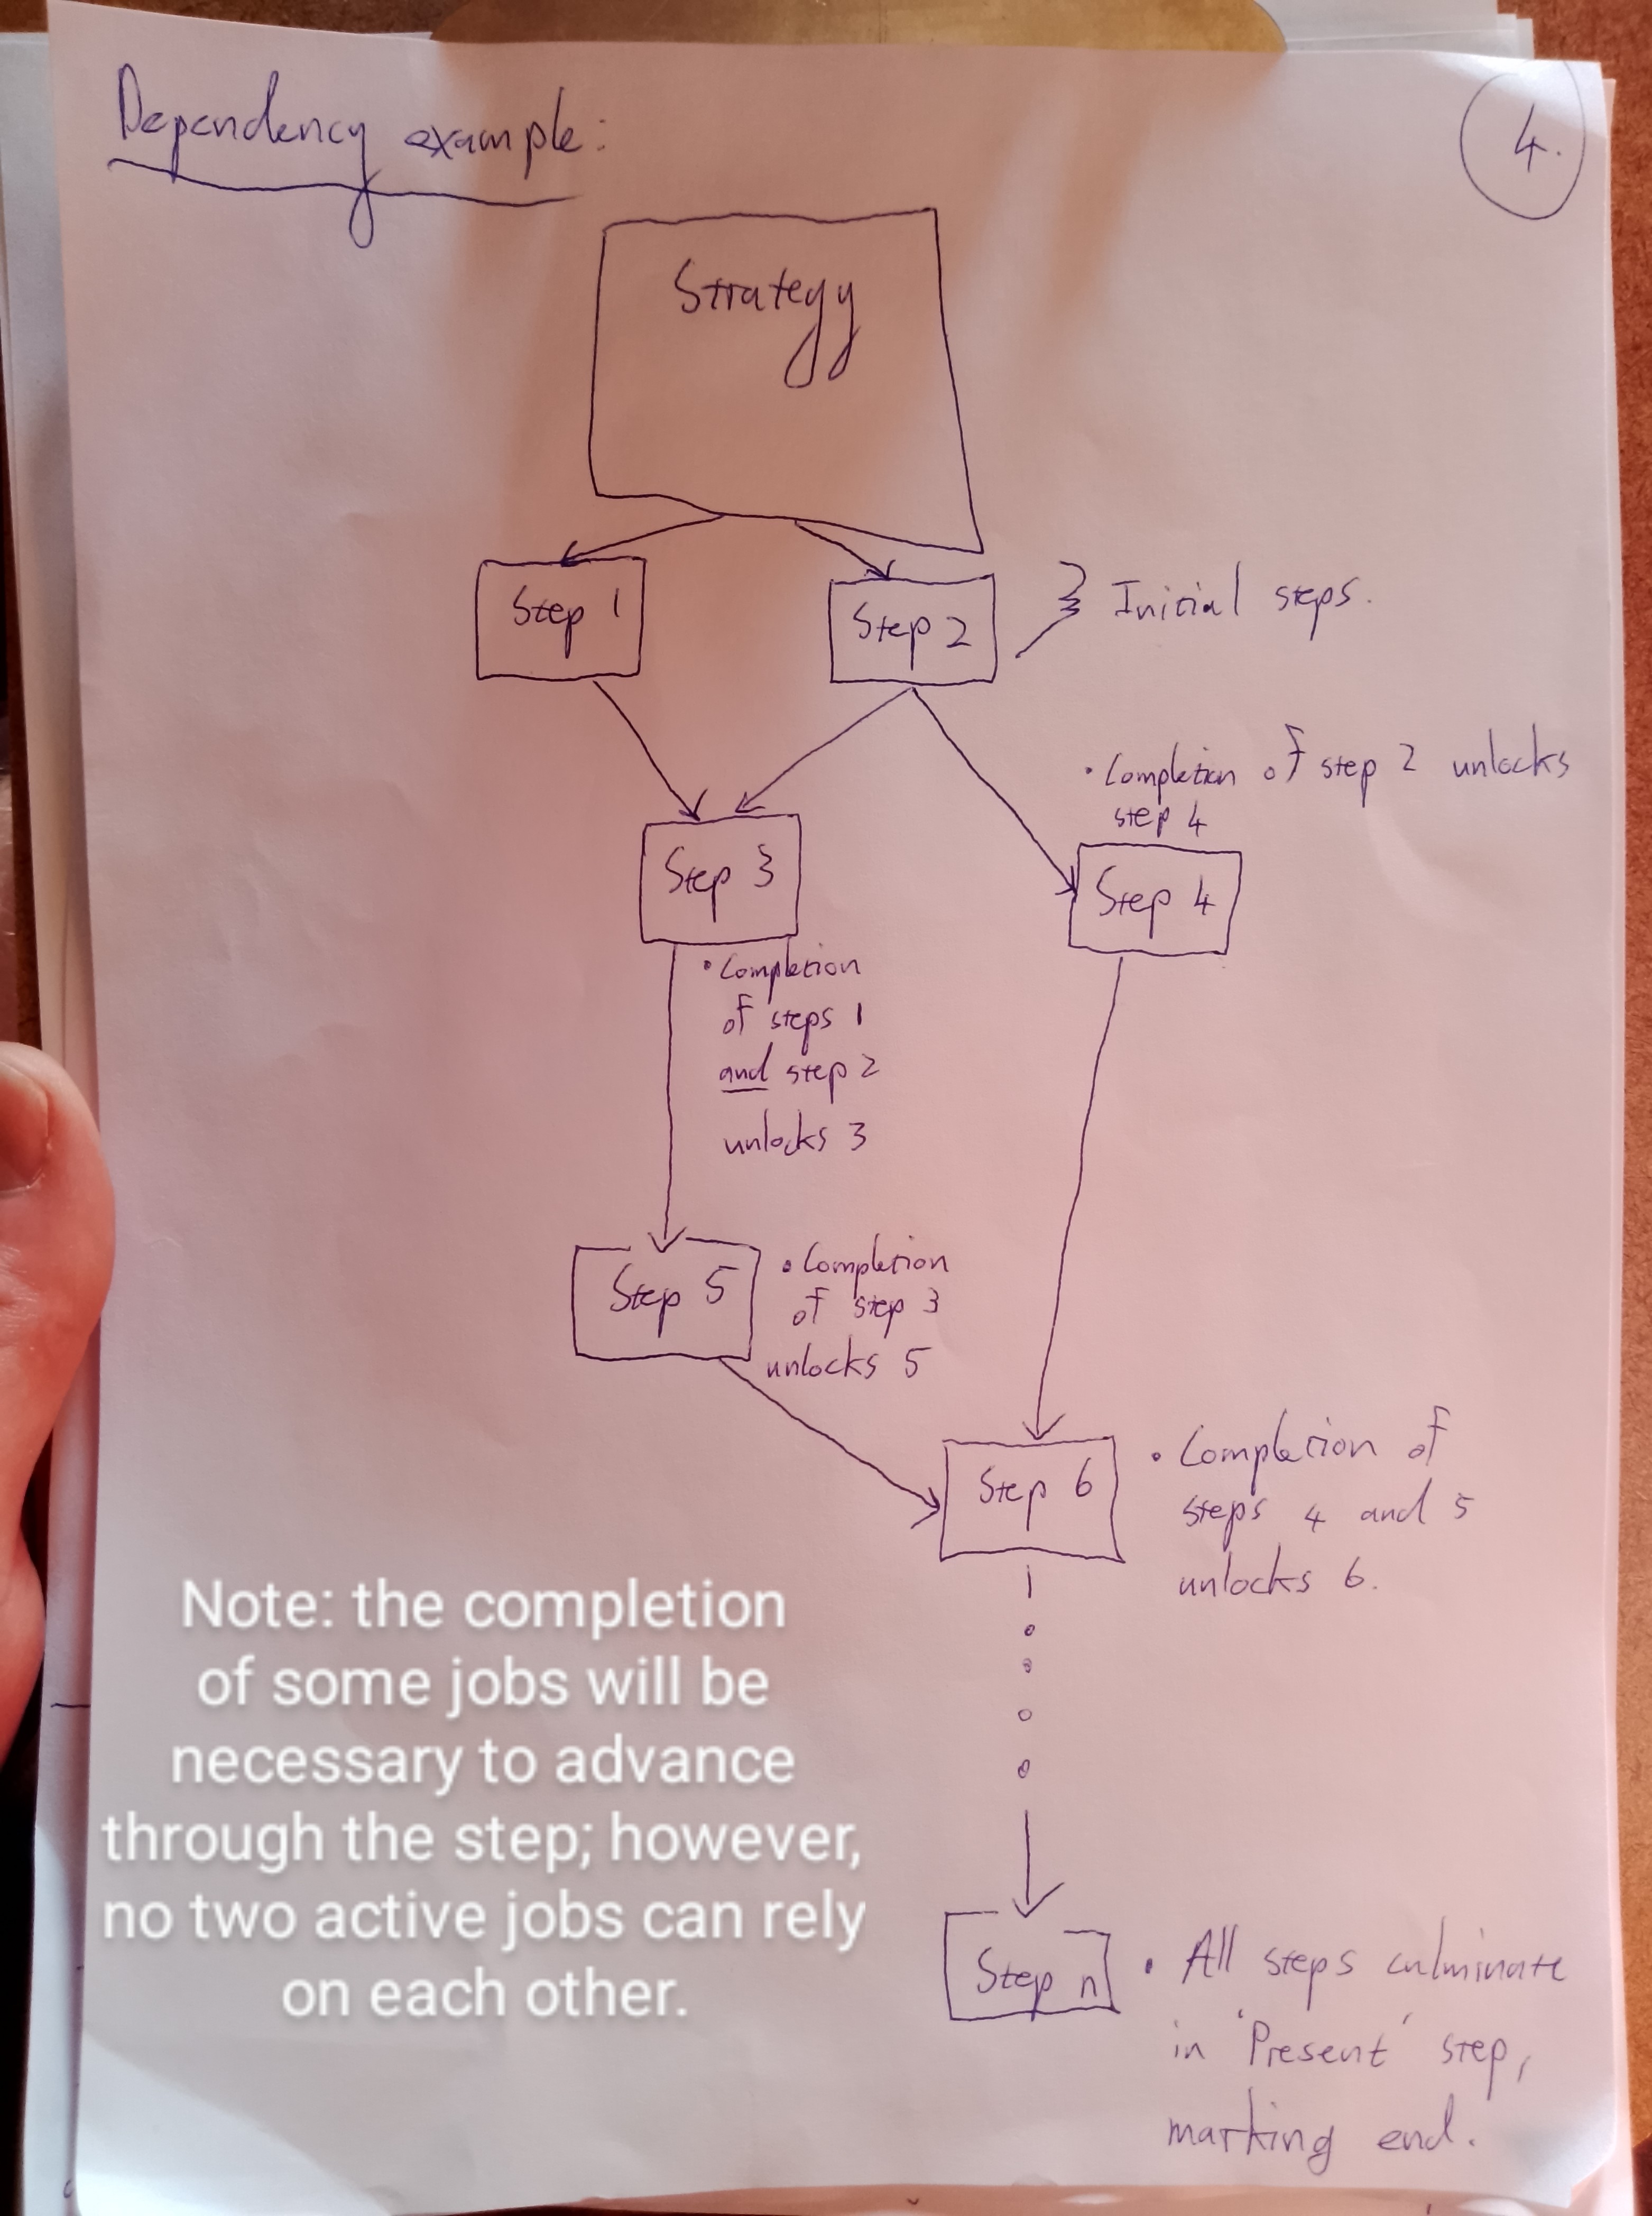 Dependency example:
4.
Strategy
Step 1
Step 2
Initial steps.
• Completion of step 2 unlocks
step 4
Step 3
Step 4
• Completion
of steps 1
and step 2
unlocks 3
Step 5
• Completion
of step 3
unlocks 5
Step 6
• Completion of
steps 4 and 5
unlocks 6.
Note: the completion
of some jobs will be
necessary to advance
through the step; however,
no two active jobs can rely
on each other.
Step n
• All steps culminate
in 'Present' step,
marking end.